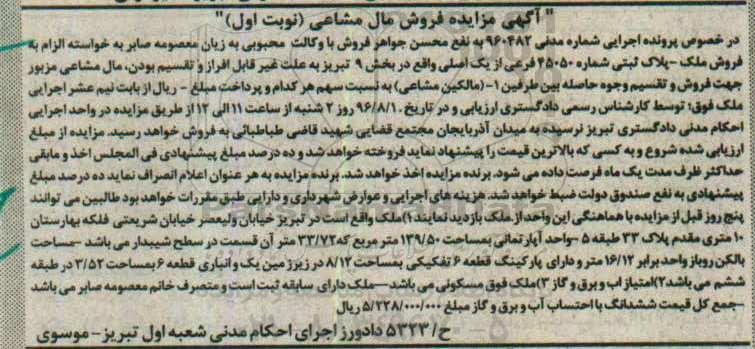 " آگهی مزایده فروش مال مشاعی (نوبت اول)"
در خصوص پرونده اجرایی شماره مدنی ۹۶۰۴۸۲ به نفع محسن جواهر فروش با وکالت محبوبی به زیان معصومه صابر به خواسته الزام به
فروش ملک –پلاک ثبتی شماره ۴۵۰۵۰ فرعی از یک اصلی واقع در بخش ۹ تبریز به علت غیر قابل افراز و تقسیم بودن، مال مشاعی مزبور
جهت فروش و تقسیم وجوه حاصله بین طرفین ۱–(مالکین مشاعی) به نسبت سهم هر کدام و پرداخت مبلغ – ریال از بابت نیم عشر اجرایی
ملک فوق؛ توسط کارشناس رسمی دادگستری ارزیابی و در تاریخ ۹۶/۸/۱۰ روز ۲ شنبه از ساعت ۱۱ الی ۱۲ از طریق مزایده در واحد اجرایی
احکام مدنی دادگستری تبریز نرسیده به میدان آذربایجان مجتمع قضایی شهید قاضی طباطبائی به فروش خواهد رسید. مزایده از مبلغ
ارزیابی شده شروع و به کسی که بالاترین قیمت را پیشنهاد نماید فروخته خواهد شد و ده درصد مبلغ پیشنهادی فی المجلس اخذ و مابقی
حداکثر ظرف مدت یک ماه فرصت داده می شود. برنده مزایده اخذ خواهد شد. برنده مزایده به هر عنوان اعلام انصراف نماید ده درصد مبلغ
پیشنهادی به نفع صندوق دولت ضبط خواهد شد. هزینه های اجرایی و عوارض شهرداری و دارایی طبق مقررات خواهد بود طالبین می توانند
پنج روز قبل از مزایده با هماهنگی این واحد از ملک بازدید نمایند ۱)ملک واقع است در تبریز خیابان ولیعصر خیابان شریعتی فلکه بهارستان
۱۰ متری مقدم پلاک ۳۳ طبقه ۵ –واحد آپارتمانی بمساحت ۱۳۹/۵۰ متر مربع که ۳۳/۷۲ متر آن قسمت در سطح شیبدار می باشد –مساحت
بالکن روباز واحد برابر ۱۶/۱۲ متر و دارای پارکینگ قطعه ۶ تفکیکی بمساحت ۸/۱۲ در زیرزمین یک و انباری قطعه ۶ بمساحت ۳/۵۲ در طبقه
ششم می باشد ۲)امتیاز اب و برق و گاز ۳)ملک فوق مسکونی می باشد –ملک دارای سابقه ثبت است و متصرف خانم معصومه صابر می باشد
–جمع کل قیمت ششدانگ با احتساب آب و برق و گاز مبلغ ۵/۲۲۸/۰۰۰/۰۰۰ ریال
ح/ ۵۳۲۳ دادورز اجرای احکام مدنی شعبه اول تبریز – موسوی